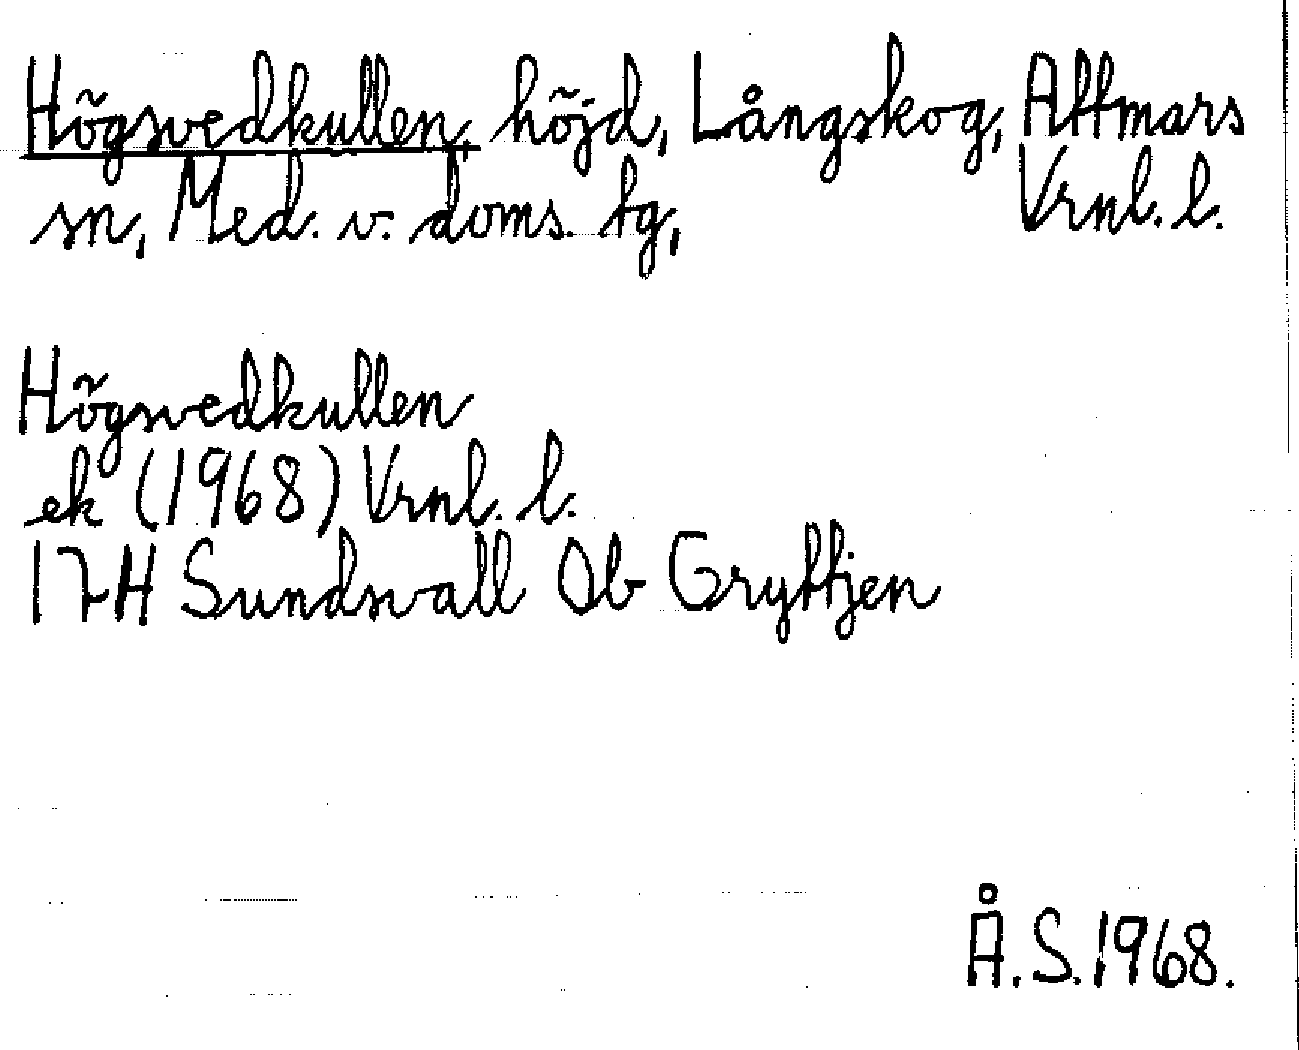 Högsvedkullen, höjd, Långskog, Attmars
sn, Med. v. doms. tg, Vrnl. l.
Högsvedkullen
ek (1968) Vrnl. l.
17H Sundsvall Ob Gryttjen
Å.S. 1968.